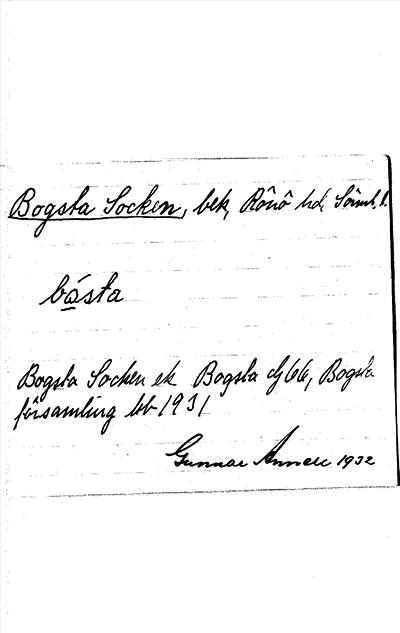 Bogsta Socken, bek, Rönö hd, Söml.l.
bå̱sta
Bogsta Socken ek Bogsta dj 66, Bogsta
församling bb 1931
Gunnar 1932